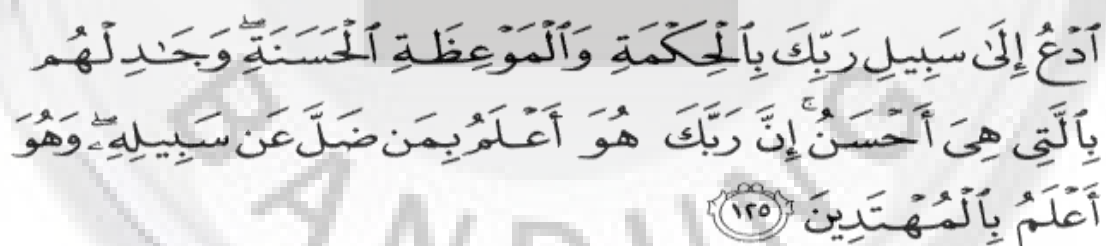 ٱدْعُ إِلَىٰ سَبِيلِ رَبِّكَ بِٱلْحِكْمَةِ وَٱلْمَوْعِظَةِ ٱلْحَسَنَةِۖ وَجَـٰدِلْهُم
بِٱلَّتِى هِىَ أَحْسَنُۚ إِنَّ رَبَّكَ هُوَ أَعْلَمُ بِمَن ضَلَّ عَن سَبِيلِهِۦۖ وَهُوَ
أَعْلَمُ بِٱلْمُهْتَدِينَ ١٢٥